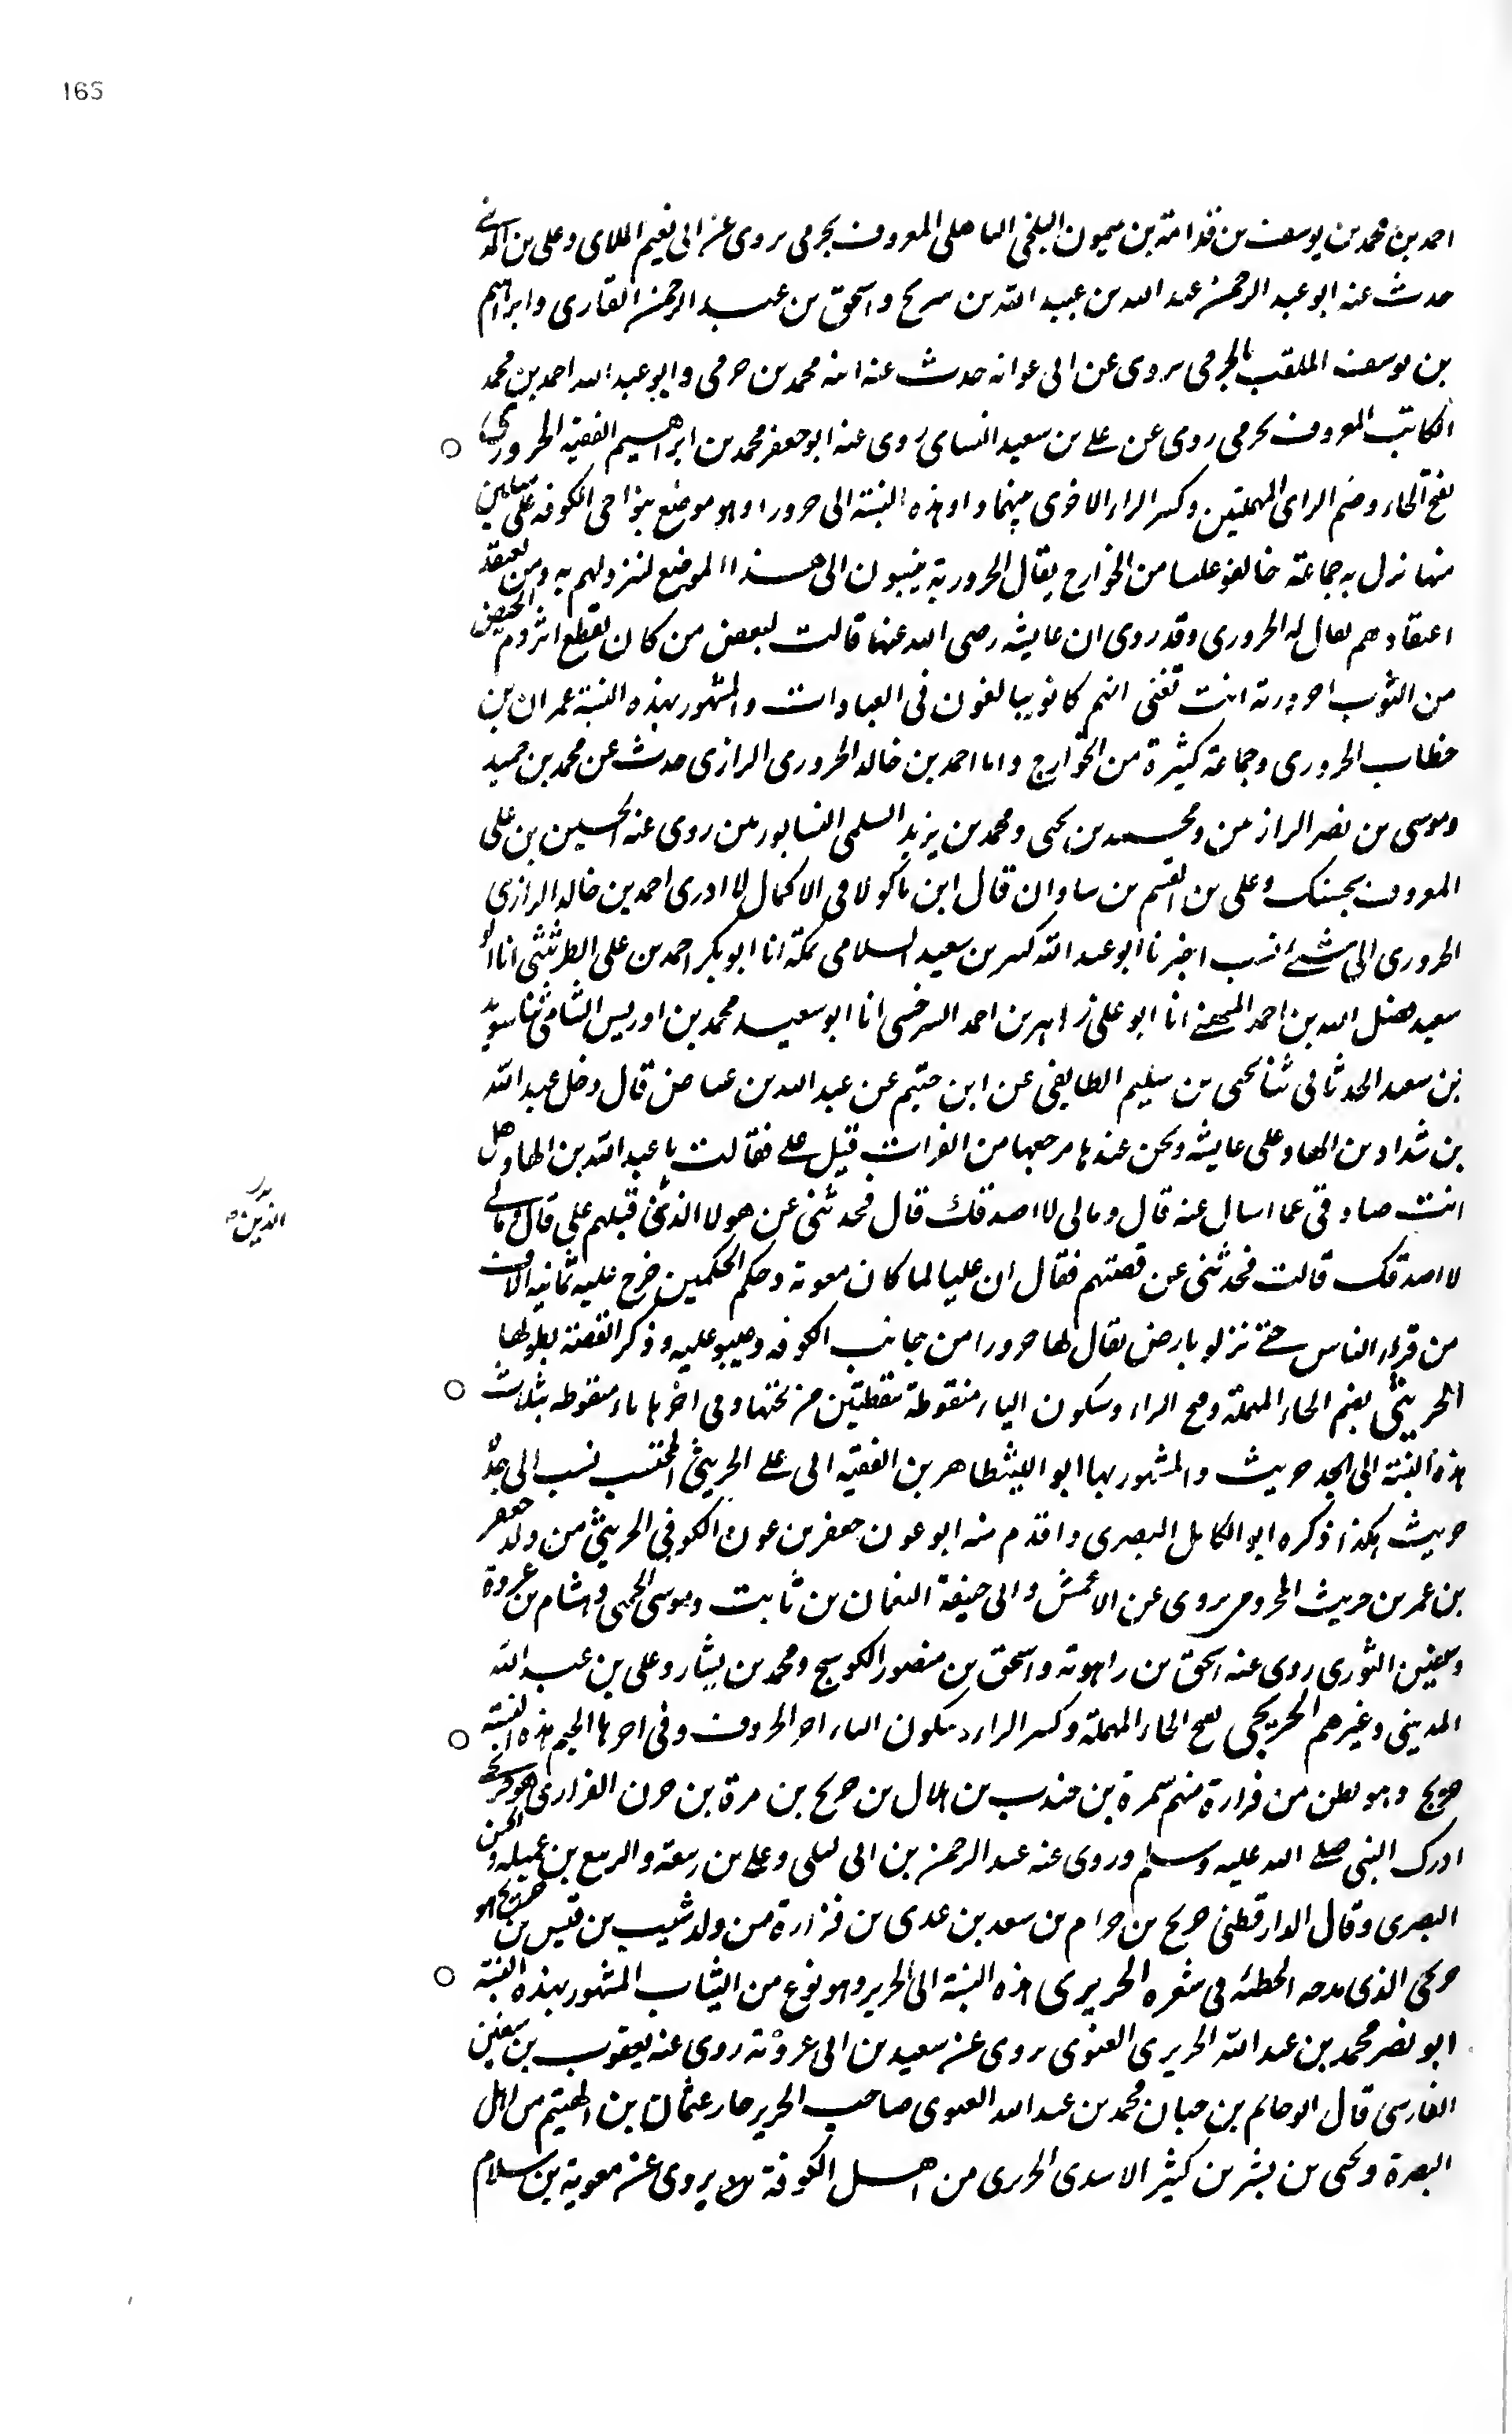 165
احمد بن محمد بن يوسف بن قدامة بن ميمون البلخي الباهلي المعروف بحرمي يروى عن ابى نعيم الملاى وعلى بن
حدث عنه ابو عبد الرحمن عبد الله بن عبيد الله بن سريح واسحق بن عبد الرحمن القارى وابراهيم
بن يوسف الملقب بالحرمي يروى عن ابى عوانه حدث عنه ابنه محمد بن حرمى وابو عبد الله احمد بن محمد
الكاتب المعروف بحرمى روى عن على بن سعيد النساى روى عنه ابو جعفر محمد بن ابراهيم الفقيه الحرورى
بفتح الحاء وضم الراى المهملتين وكسر الراء الاخرى بينهما واو هذه النسبة الى حرورا وهو موضع بنواحى الكوفه على ميلين
منها نزل به جماعة خالفو عليا من الخوارج يقال الحرورية ينسبون الى هذا الموضع لنزولهم به ومن يعتقد
اعتقادهم يقال له الحرورى وقد روى ان عايشه رضى الله عنها قالت لبعض من كان يقطع اثر دم الحيض
من الثوب احرورية انت تعنى انهم كانو يبالغون فى العبادات والمشهور بهذه النسبة عمران بن
حطاب الحرورى وجماعة كثيرة من الخوارج واما احمد بن خالد الحرورى الرازى حدث عن محمد بن حميد
وموسى بن نصر الرازيين ومحمد بن يحيى ومحمد بن يزيد السلمى النسابوريين روى عنه الحسين بن على
المعروف بحسنك وعلى بن القسم بن شاذان قال ابن ماكولا فى الاكمال لا ادرى احمد بن خالد الرازى
الحرورى الى اى شئ نسب اخبرنا ابو عبد الله كثير بن سعيد السلامى بمكة انا ابو بكر احمد بن على الطريثيثى انا ابو
سعيد فضل الله بن احمد الميهنى انا ابو على زاهر بن احمد السرخسى انا ابو سعيد محمد بن ادريس الشامى ثنا سويد
بن سعيد الحدثانى ثنا يحيى بن سليم الطايفى عن ابن خثيم عن عبد الله بن عياض قال دخل عبد الله
بن شداد بن الهاد على عايشه ونحن عندها مرجعها من الفرات قتيل على فقالت يا عبد الله بن الهاد هل
انت صادقى عما اسال عنه قال ومالى لا اصدقك قال فحدثنى عن هولا الذين قتلهم على قال ومالى
الذين
لا اصدقك قالت فحدثنى عن قصتهم فقال ان عليا لما كان معوية وحكم الحكمين خرج عليه ثمانية الاف
من قراء الناس حتى نزلو بارض يقال لها حرورا من جانب الكوفه وعيبو عليه وذكر القصة بطولها
الحريثى بضم الحاء المهملة وفتح الراء وسكون الياء منقوطة بنقطتين من تحتها وفى اخرها ثاء منقوطه بثلاث
هذه النسبة الى الجد حريث والمشهور بها ابو الليث طاهر بن الفقيه ابى على الحريثى المحتسب نسب الى جده
حريث هكذا ذكره ابو الكامل البصرى واقدم منه ابو عون جعفر بن عون الكوفى الحريثى من ولد جعفر
بن عمر بن حريث المخزومى يروى عن الاعمش وابى حنيفة النعمان بن ثابت وموسى الجهنى وهشام بن عروة
وسفين الثورى روى عنه اسحق بن راهويه واسحق بن منصور الكوسج ومحمد بن بشار وعلى بن عبد الله
المدينى وغيرهم الحريجى بفتح الحاء المهملة وكسر الراء وسكون الياء اخر الحروف وفى اخرها الجيم هذه النسبة
حريج وهو بطن من فزارة منهم سمرة بن جندب بن هلال بن حريج بن مرة بن حزن الفزارى هو حريجى
ادرك النبى صلى الله عليه وسلم وروى عنه عبد الرحمن بن ابى ليلى وعلى بن ربيعة والربيع بن عميله والحسن
البصرى وقال الدارقطنى حريج بن حرام بن سعد بن عدى بن فزارة من ولد شبيب بن قيس بن حريج هو
حريجى الذى مدحه الحطئه فى شعره الحريرى هذه النسبة الى الحرير وهو نوع من الثياب المشهور بهذه النسبة
ابو نصر محمد بن عبد الله الحريرى الغنوى يروى عن سعيد بن ابى عروبة روى عنه يعقوب بن سفين
الفارسى قال ابو حاتم بن حبان محمد بن عبد الله الغنوى صاحب الحرير جار عثمان بن الهيثم من اهل
البصرة ويحيى بن بشر بن كثير الاسدى الحريرى من اهل الكوفة يروى عن معوية بن سلام